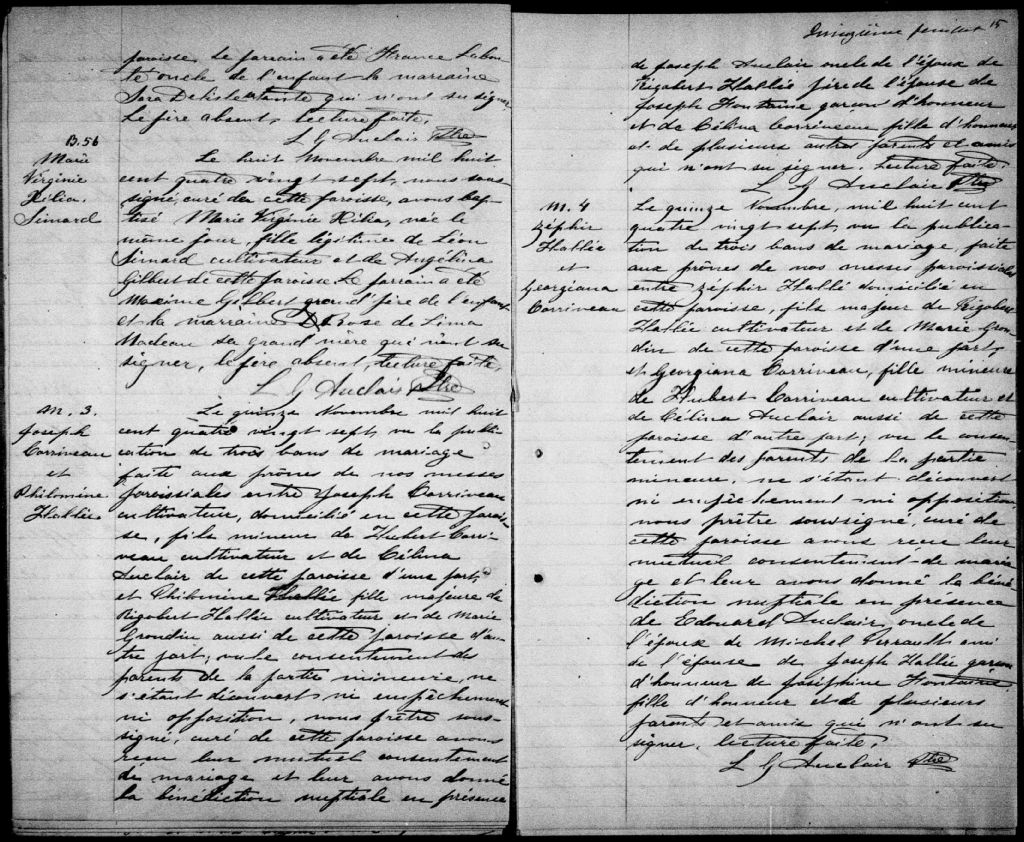 paroisse. Le parrain a été France Labon-
té oncle de l'enfant la marraine
Sara Delisle tante qui n'ont su signer
Le père absent, lecture faite.
L G Auclair Ptre
B. 56
Marie
Virginie
Hélia.
Simard
Le huit Novembre mil huit
cent quatre vingt sept, nous sous-
signé, curé de cette paroisse, avons bap-
tisé Marie Virginie Hélia, née le
même jour, fille légitime de Léon
Simard cultivateur et de Angélina
Gilbert de cette paroisse Le parrain a été
Maxime Gilbert grand'père de l'enfant
et la marraine Rose de Lima
Nadeau sa grand mère qui n'ont su
signer, le père absent, lecture faite
L G Auclair Ptre
M. 3.
Joseph
Corriveau
et
Philomine
Hallée
Le quinze Novembre mil huit
cent quatre vingt sept, vu la publi-
cation de trois bans de mariage
faite aux prônes de nos messes
paroissiales entre Joseph Corriveau
cultivateur, domicilié en cette parois-
se, fils mineur de Hubert Corri-
veau cultivateur et de Célina
Auclair de cette paroisse d'une part,
et Philomine Hallée fille majeure de
Rigobert Hallée cultivateur et de Marie
Grondin aussi de cette paroisse d'au-
tre part; vu le consentement des
parents de la partie mineure, ne
s'étant découvert ni empêchement
ni opposition, nous prêtre sous-
signé, curé de cette paroisse avons
reçu leur mutuel consentement
de mariage et leur avons donné
la bénédiction nuptiale en présence
Quinzième feuillet 15
de Joseph Auclair oncle de l'époux de
Rigobert Hallée père de l'épouse de
Joseph Fontaine garçon d'honneur
et de Célina Corriveau fille d'honneur
et de plusieurs autres parents et amis
qui n'ont su signer. Lecture faite.
L G Auclair Ptre
M. 4
Zéphir
Hallée
et
Georgiana
Corriveau
Le quinze Novembre, mil huit cent
quatre vingt sept, vu la publica-
tion de trois bans de mariage, faite
aux prônes de nos messes paroissiales
entre Zéphir Hallé domicilié en
cette paroisse, fils majeur de Rigobert
Hallée cultivateur et de Marie Gron-
din de cette paroisse d'une part,
et Georgiana Corriveau, fille mineure
de Hubert Corriveau cultivateur et
de Célina Auclair aussi de cette
paroisse d'autre part; vu le consen-
tement des parents de la partie
mineure, ne s'étant découvert
ni empêchement ni opposition
nous prêtre soussigné, curé de
cette paroisse avons reçu leur
mutuel consentement de maria-
ge et leur avons donné la béné-
diction nuptiale en présence
de Edouard Auclair, oncle de
l'époux de Michel Perrault ami
de l'épouse de Joseph Hallée garçon
d'honneur de Joséphine Fontaine
fille d'honneur et de plusieurs
parents et amis qui n'ont su
signer, lecture faite.
L G Auclair Ptre